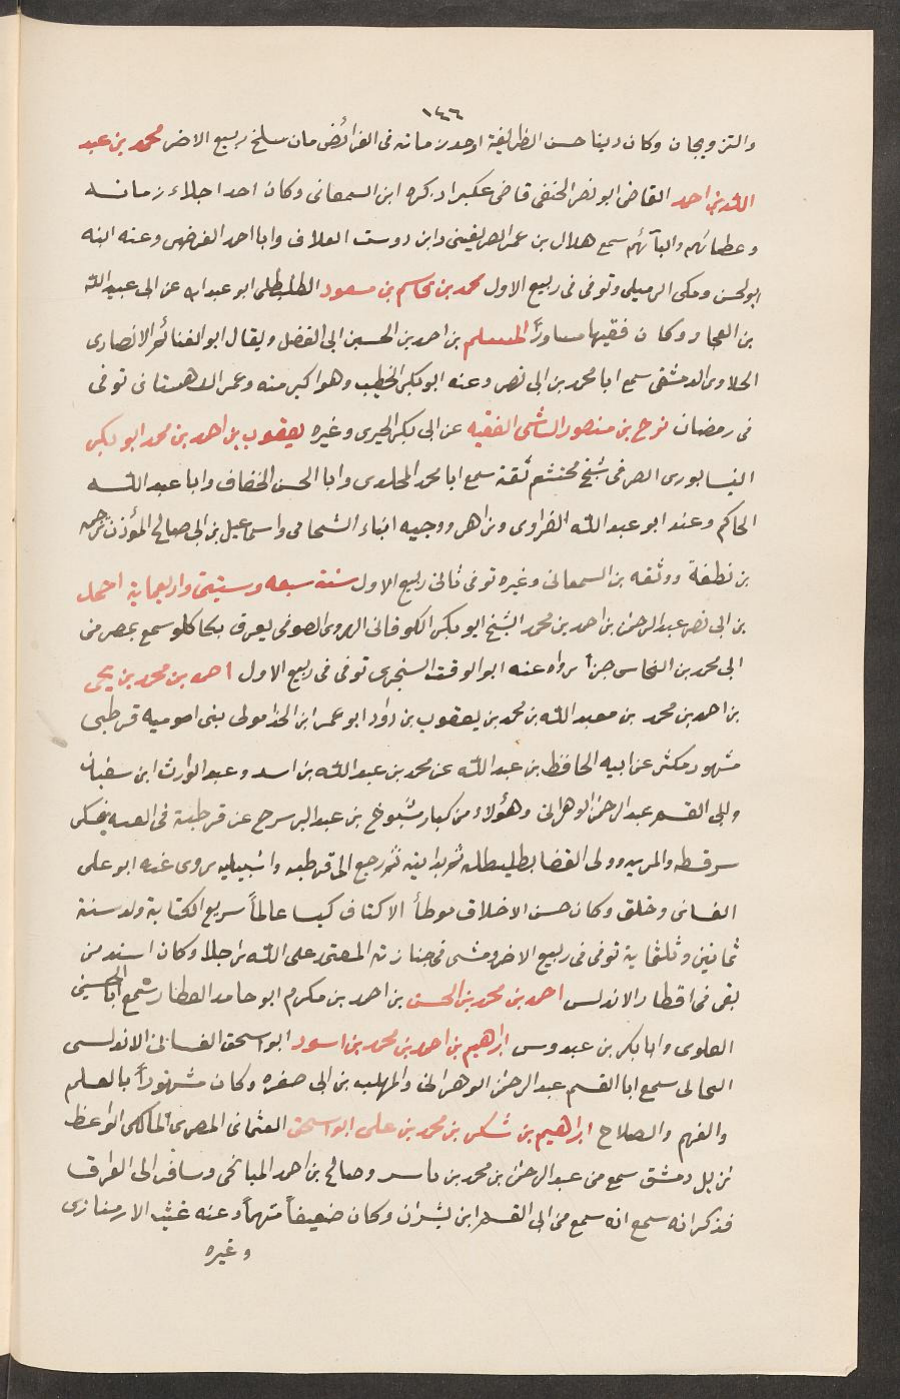 ١٤٦
والتزويجان وكان دينا حسن الطريقة اوحد زمانه فى الفرائض مات سلخ ربيع الاخر محمد بن عبد
الله بن احمد القاضى ابو نصر الحنفى قاضى عكبرا ذكره ابن السمعانى وكان احد اجلاء زمانه
وعطمائهم والبائهم سمع هلال بن عمر الصريفينى وابن دوست العلاف وابا احمد الفرضى وعنه ابنه
ابو الحسن ومكى الرميلى وتوفى فى ربيع الاول محمد بن قاسم بن مسعود الطليطلى ابو عبد الله عن ابى عبد الله
بن الفجار وكان فقيها مشاورًا المسلم بن احمد بن الحسين ابى الفضل ويقال ابو الغنائم الانصارى
الحلاوى الدمشقى سمع ابا محمد بن ابى نصر وعنه ابو بكر الخطيب وهو اكبر منه وعمر الدهستانى توفى
فى رمضان نوح بن منصور الشاشى الفقيه عن ابى بكر الحيرى وغيره يعقوب بن احمد بن محمد ابو بكر
النيسابورى الصرفى شيخ محتشم ثقة سمع ابا محمد المخلدى وابا الحسن الخفاف وابا عبد الله
الحاكم وعنه ابو عبد الله الفراوى وزاهر ووجيه ابناء الشحامى واسماعيل بن ابى صالح المؤذن ترجمه
بن نطفة ووثقه بن السمعانى وغيره توفى ثانى ربيع الاول سنة سبعه وستين واربعماية احمد
بن ابى نصر عبد الرحمن بن احمد بن محمد الشيخ ابو بكر الكوفانى الهروى الصوفى يعرف بكاكلو سمع بمصر من
ابى محمد بن النحاس جزأ رواه عنه ابو الوقت السنجرى توفى فى ربيع الاول احمد بن محمد بن يحيى
بن احمد بن محمد بن معبد الله بن محمد بن يعقوب بن داود ابو عمر ابن الحذا مولى بنى اموميه قرطبى
مشهور مكثر عن ابيه الحافظ بن عبد الله عن محمد بن عبد الله بن اسد وعبد الوارث ابن سفيان
وابى القسم عبد الرحمن الوهرانى وهؤلاء من كبار شيوخ بن عبد البر سرح عن قرطبة فى الفتنه فسكن
سرقطه والمريه وولى القضا بطليطله ثم بدانيه ثم رجع الى قرطبه واشبيليه يروى عنه ابو على
الغسانى وخلق وكان حسن الاخلاق موطأ الاكناف كيسا عالمًا سريع الكتابة ولد سنة
ثمانين وثلثماية توفى فى ربيع الاخر ومشى فى جنازته المعتمد على الله راجلا وكان اسند من
بقى فى اقطار الاندلس احمد بن محمد بن الحسن بن احمد بن مكرم ابو حامد العطار سمع ابا الحسين
العلوى وابا بكر بن عبدوس ابراهيم بن احمد بن محمد بن اسود ابو اسحق الغسانى الاندلسى
البحانى سمع ابا القسم عبد الرحمن الوهرانى والمهلب بن ابى صفره وكان مشهورًا بالعلم
والفهم والصلاح ابراهيم بن شكر بن محمد بن على ابو اسحق العثمانى المصرى المالكى الواعظ
نزيل دمشق سمع من عبد الرحمن بن محمد بن ياسر وصالح بن احمد الميانجى وسافر الى العراق
فذكر انه سمع انه سمع من ابى القسم ابن بشران وكان ضعيفاً متهماً وعنه غيث الارمنازى
وغيره